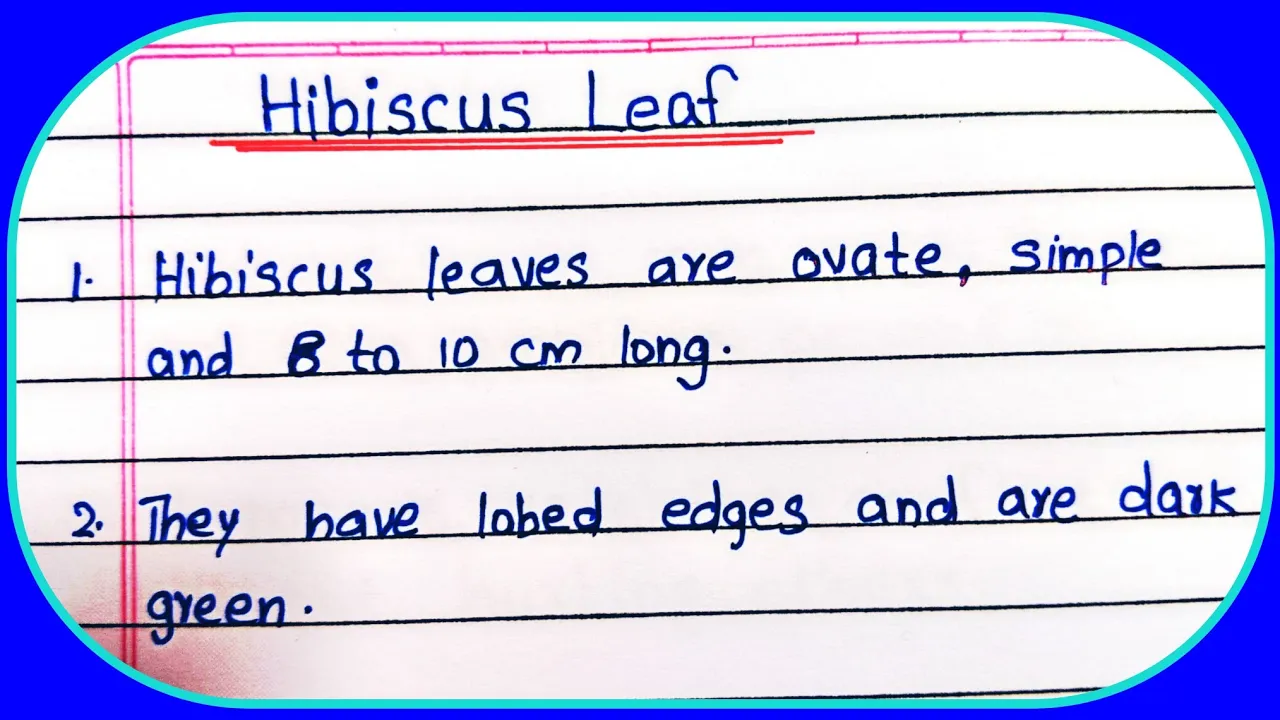 Hibiscus Leaf
1. Hibiscus leaves are ovate, simple
and 8 to 10 cm long.
2. They have lobed edges and are dark
green.